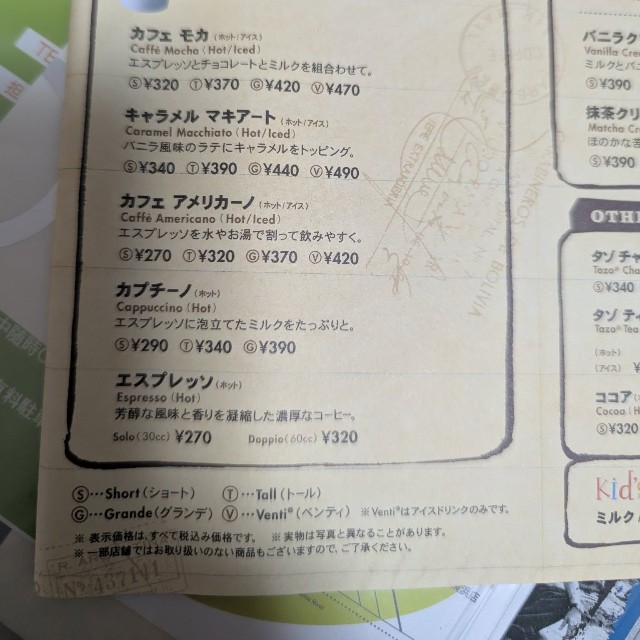 カフェ モカ (ホット/アイス)
Caffè Mocha (Hot/Iced)
エスプレッソとチョコレートとミルクを組合わせて。
Ⓢ¥320 Ⓣ¥370 Ⓖ¥420 Ⓥ¥470
キャラメル マキアート (ホット/アイス)
Caramel Macchiato (Hot/Iced)
バニラ風味のラテにキャラメルをトッピング。
Ⓢ¥340 Ⓣ¥390 Ⓖ¥440 Ⓥ¥490
カフェ アメリカーノ (ホット/アイス)
Caffè Americano (Hot/Iced)
エスプレッソを水やお湯で割って飲みやすく。
Ⓢ¥270 Ⓣ¥320 Ⓖ¥370 Ⓥ¥420
カプチーノ (ホット)
Cappuccino (Hot)
エスプレッソに泡立てたミルクをたっぷりと。
Ⓢ¥290 Ⓣ¥340 Ⓖ¥390
エスプレッソ (ホット)
Espresso (Hot)
芳醇な風味と香りを凝縮した濃厚なコーヒー。
Solo (30cc) ¥270 Doppio (60cc) ¥320
Ⓢ…Short (ショート) Ⓣ…Tall (トール)
Ⓖ…Grande (グランデ) Ⓥ…Venti® (ベンティ) ※Venti®はアイスドリンクのみです。
※ 表示価格は、すべて税込み価格です。 ※ 実物は写真と異なることがあります。
※ 一部店舗ではお取り扱いのない商品もございますので、ご了承ください。
バニラク
Vanilla Cre
ミルクとバニ
Ⓢ¥390
抹茶クリ
Matcha Cre
ほのかな苦
Ⓢ¥390
OTH
タゾ チャ
Tazo® Cha
Ⓢ¥340
タゾ ティ
Tazo® Tea
(ホット)
(アイス) ¥
ココア
Cocoa (H
Ⓢ¥320
Kid's
ミルク